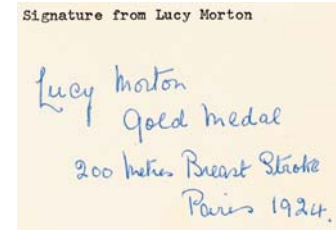 Signature from Lucy Morton
Lucy Morton
Gold Medal
200 Metres Breast Stroke
Paris 1924.